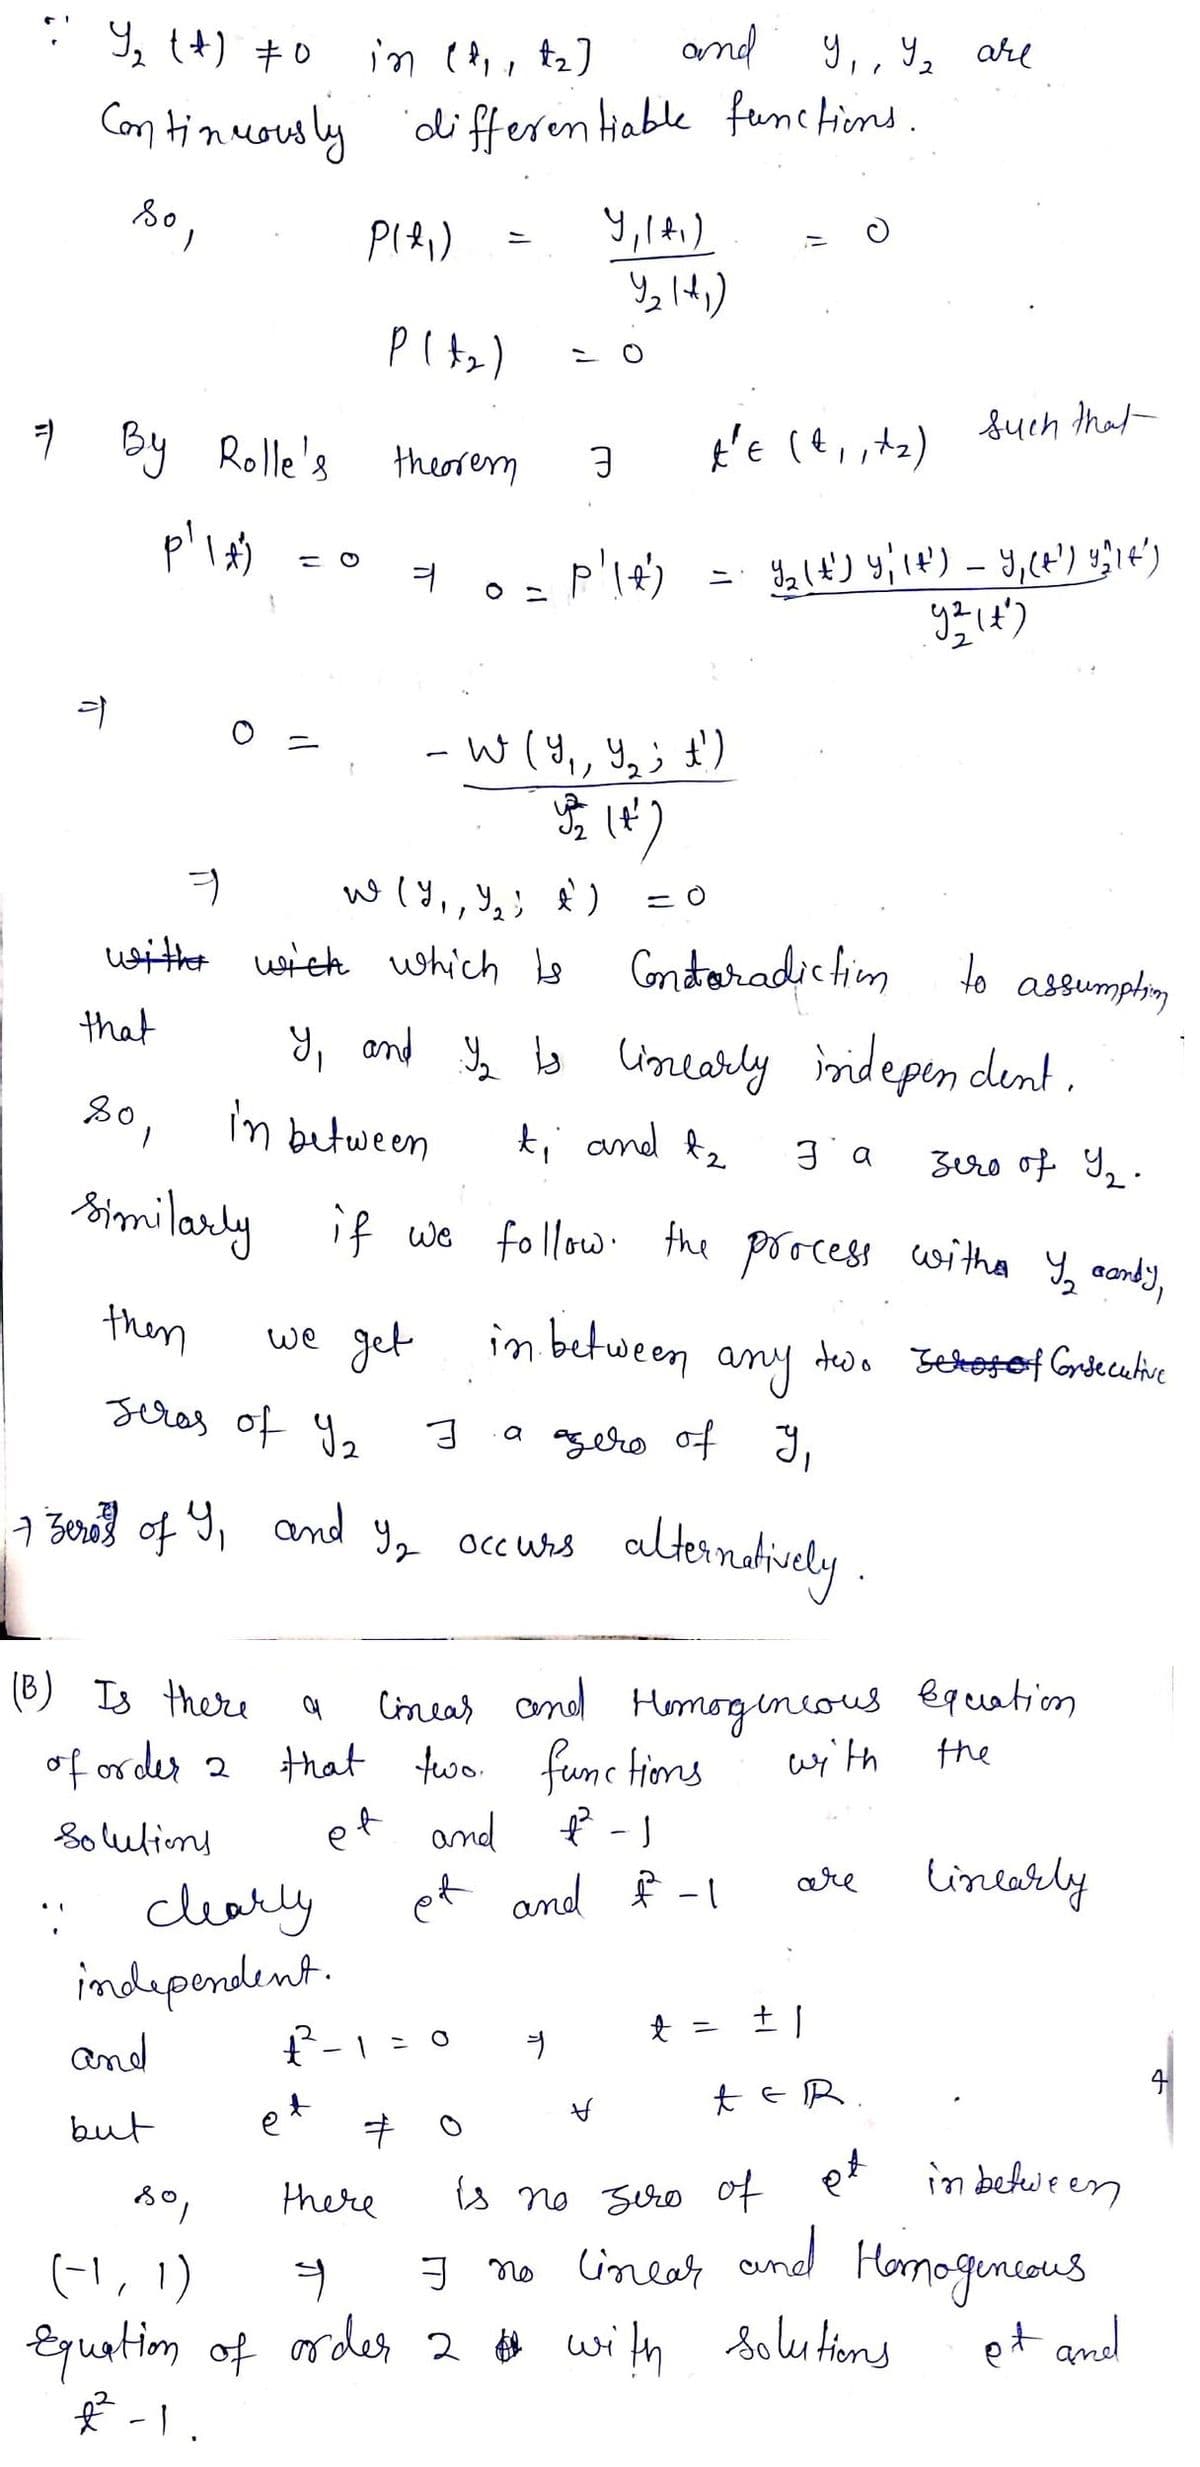 ∵ y₂(t) ≠ 0 in (t₁, t₂] and y₁, y₂ are
Continuously differentiable functions.
so, P(t₁) = y₁(t₁) / y₂(t₁) = 0
P(t₂) = 0
⇒ By Rolle's theorem ∃ t' ∈ (t₁, t₂) such that
P'(t') = 0 ⇒ 0 = P'(t') = y₂(t') y₁'(t') - y₁(t') y₂'(t') / y₂²(t')
⇒ 0 = - W(y₁, y₂; t') / y₂²(t')
⇒ W(y₁, y₂; t') = 0
which is Contradiction to assumption
that y₁ and y₂ is linearly independent.
so, in between t₁ and t₂ ∃ a zero of y₂.
Similarly if we follow the process with y₂ and y₁
then we get in between any two Consecutive
zeros of y₂ ∃ a zero of y₁
⇒ zeros of y₁ and y₂ occurs alternatively.
(B) Is there a linear and Homogeneous Equation
of order 2 that two functions with the
Solutions eᵗ and t² - 1
∵ clearly eᵗ and t² - 1 are linearly
independent.
and t² - 1 = 0 ⇒ t = ± 1
but eᵗ ≠ 0 ∀ t ∈ ℝ.
4
so, there is no zero of eᵗ in between
(-1, 1) ⇒ ∃ no linear and Homogeneous
Equation of order 2 with solutions eᵗ and
t² - 1.